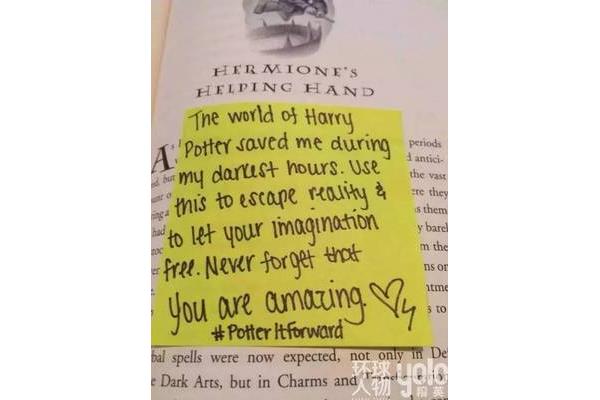 HERMIONE'S
HELPING HAND
The world of Harry
Potter saved me during
my darkest hours. Use
this to escape reality &
to let your imagination
free. Never forget that
You are amazing.
#PotterItForward
periods
d antici-
the vast
ere they
s them
y barel
m the
ns or
s to
bal spells were now expected, not only in De
e Dark Arts, but in Charms and
环球人物 yolo